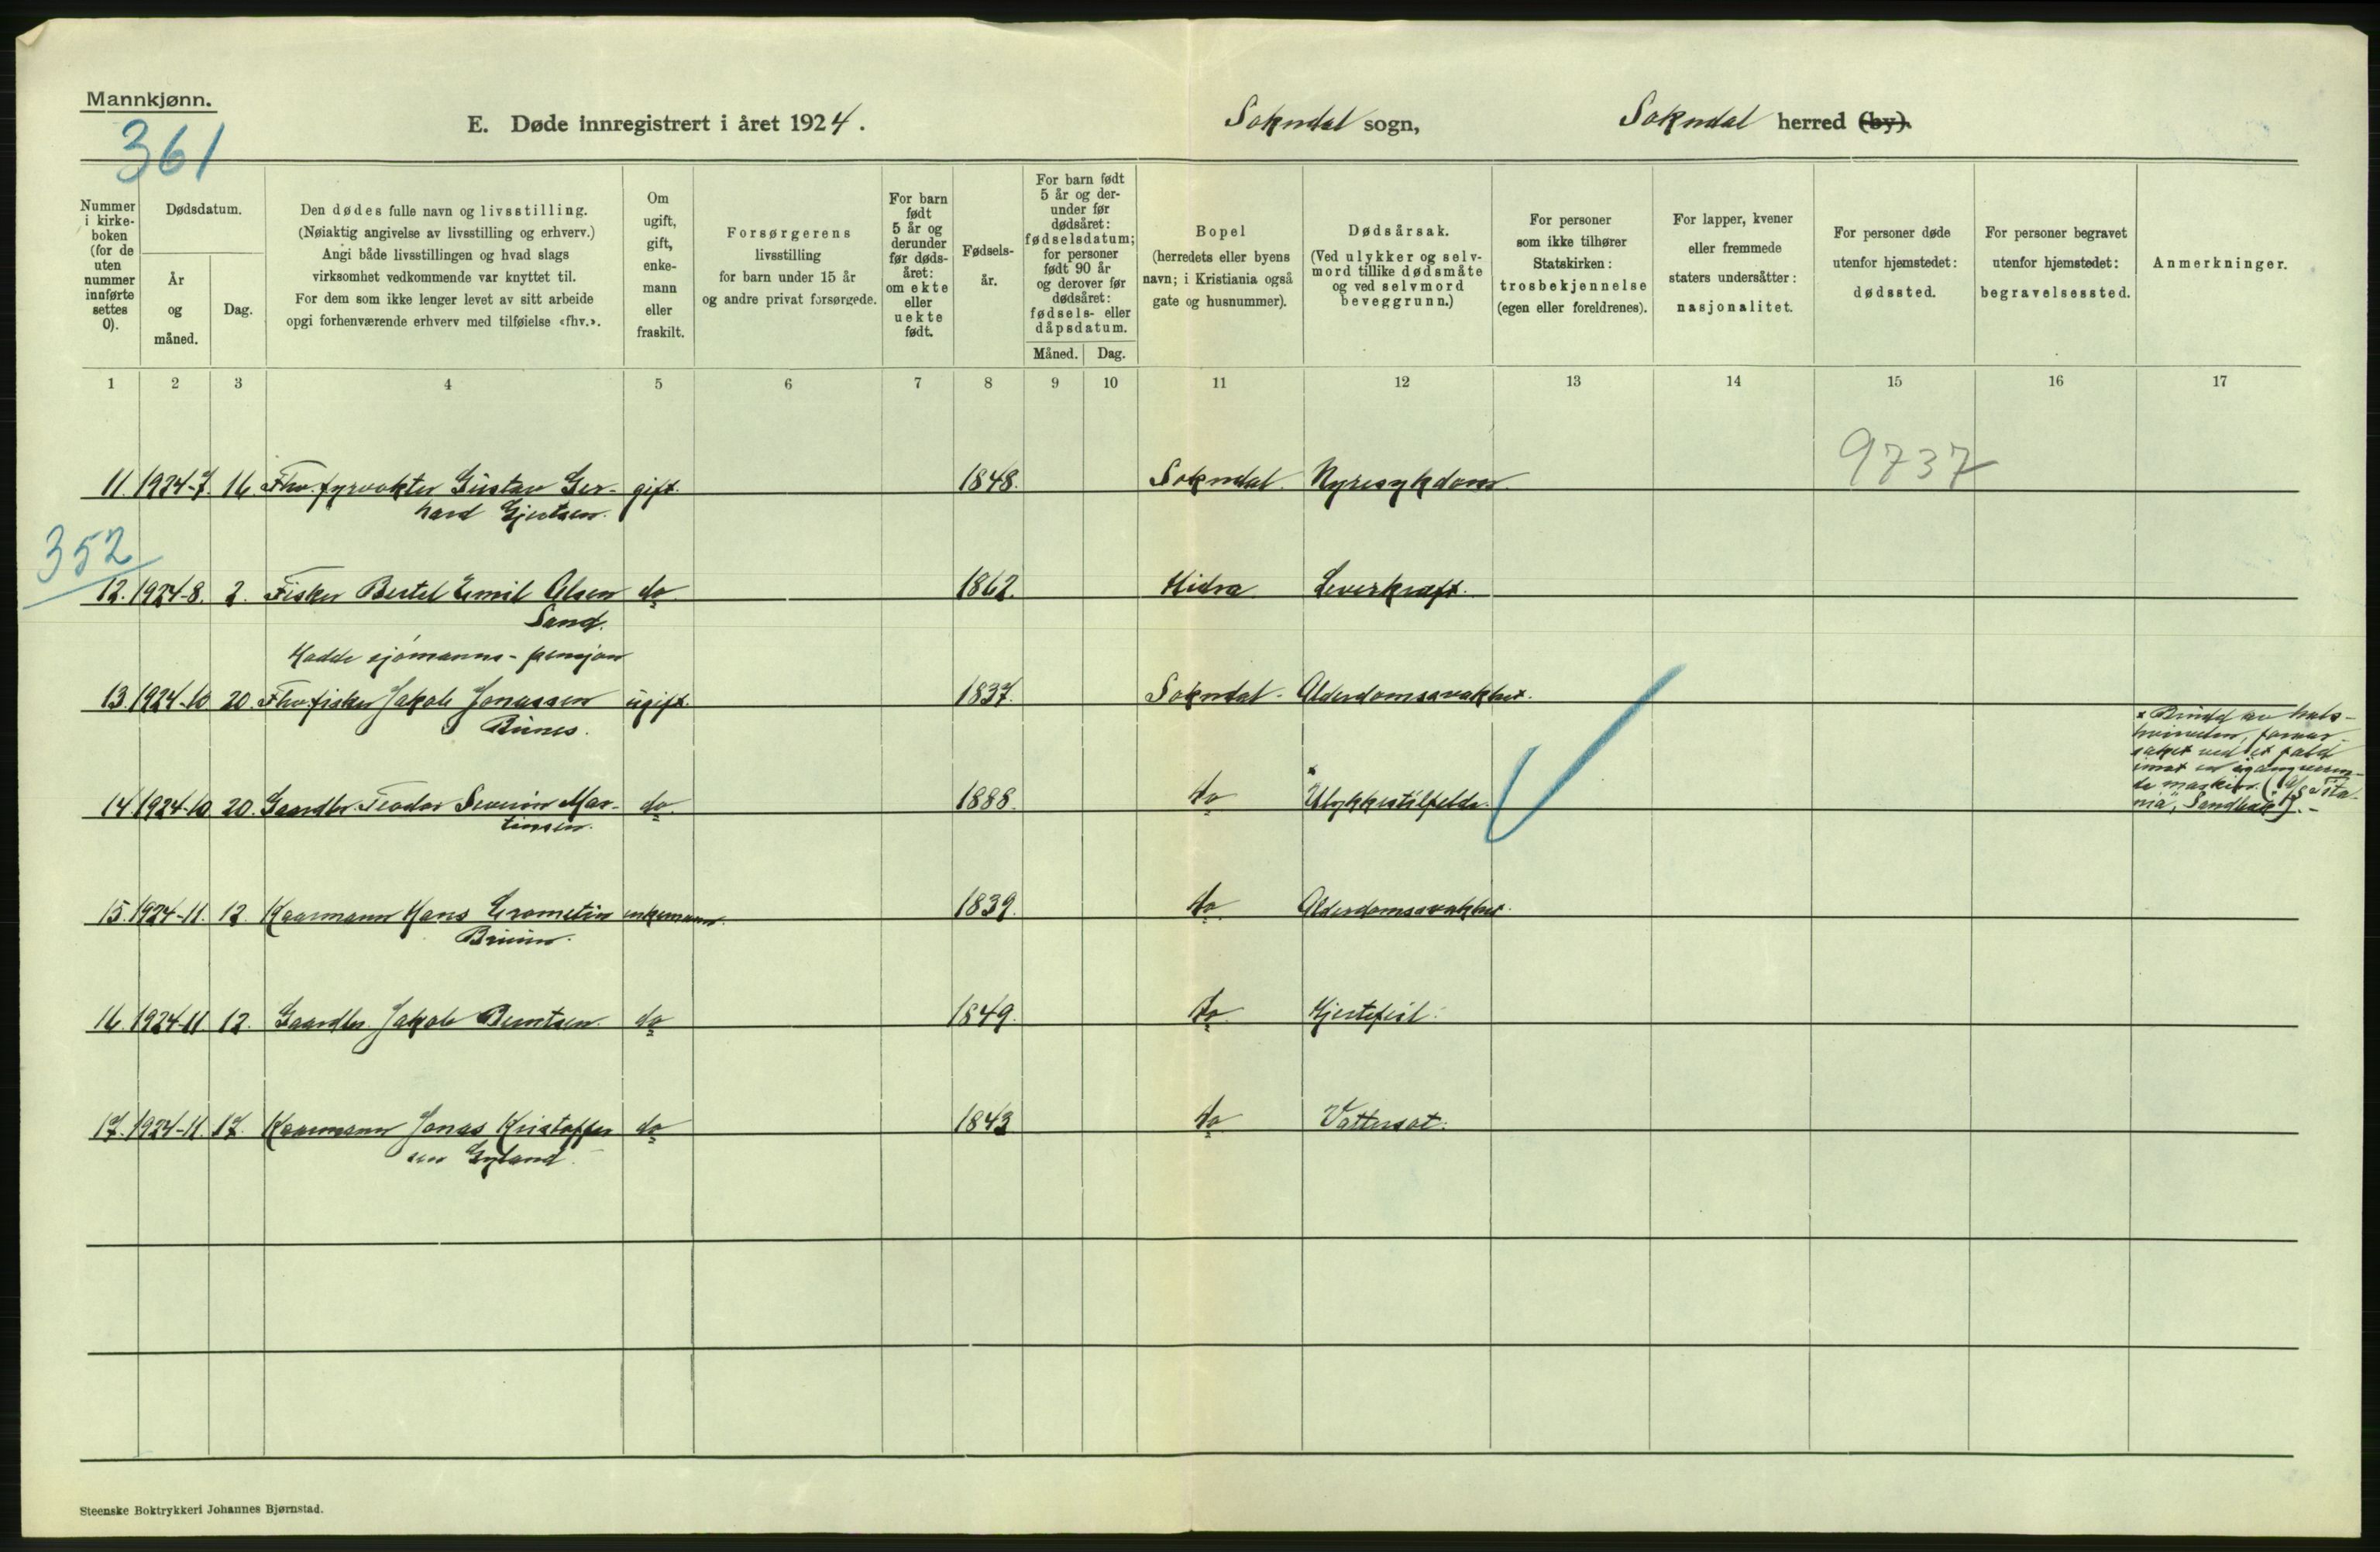 Mannkjønn.
361
E. Døde innregistrert i året 1924.
Sokndal sogn,
Sokndal herred (by).
Nummer
i kirke-
boken
(for de
uten
nummer
innførte
settes
0).
Dødsdatum.
År
og
måned.
Dag.
Den dødes fulle navn og livsstilling.
(Nøiaktig angivelse av livsstilling og erhverv.)
Angi både livsstillingen og hvad slags
virksomhet vedkommende var knyttet til.
For dem som ikke lenger levet av sitt arbeide
opgi forhenværende erhverv med tilføielse «fhv.».
Om
ugift,
gift,
enke-
mann
eller
fraskilt.
Forsørgerens
livsstilling
for barn under 15 år
og andre privat forsørgede.
For barn
født
5 år og
derunder
før døds-
året:
om ekte
eller
uekte
født.
Fødsels-
år.
For barn født
5 år og der-
under før
dødsåret:
fødselsdatum;
for personer
født 90 år
og derover før
dødsåret:
fødsels- eller
dåpsdatum.
Måned. Dag.
Bopel
(herredets eller byens
navn; i Kristiania også
gate og husnummer).
Dødsårsak.
(Ved ulykker og selv-
mord tillike dødsmåte
og ved selvmord
beveggrunn.)
For personer
som ikke tilhører
Statskirken:
trosbekjennelse
(egen eller foreldrenes).
For lapper, kvener
eller fremmede
staters undersåtter:
nasjonalitet.
For personer døde
utenfor hjemstedet:
dødssted.
For personer begravet
utenfor hjemstedet:
begravelsessted.
Anmerkninger.
1 2 3 4 5 6 7 8 9 10 11 12 13 14 15 16 17
9737
11. 1924-7. 16. Fhv. fyrvokter Gustav Ger- gift. 1848. Sokndal. Nyresykdom.
hard Gjertsen.
352
12. 1924-8. 2. Fisker Bertel Emil Olsen do 1862. Hidra Leverkræft.
Sand.
Hadde sjømanns-pensjon
13. 1924-10 20 Fhv. fisker Jakob Jonassen ugift. 1837. Sokndal. Alderdomssvakhet.
Rünes.
14 1924-10 20. Gaardbr. Teodor Severin Mar- do. 1888. do × Ulykkestilfelde.
tinsen.
× Brudd av hals-
hvirvelen, foraar-
saket ved et fald
imot en igangværen-
de maskin. (A/S Tita-
nia", Sandbek). -
15. 1924-11. 12. Kaarmann Hans Erometin enkemann. 1839. do Alderdomssvakhet.
Bruün.
16 1924-11 12. Gaardbr. Jakob Berntsen. do 1849. do Hjertefeil.
17. 1924-11. 17. Kaarmann Jonas Kristoffer do 1843 do Vattersot.
sen Gyland.
Steenske Boktrykkeri Johannes Bjørnstad.